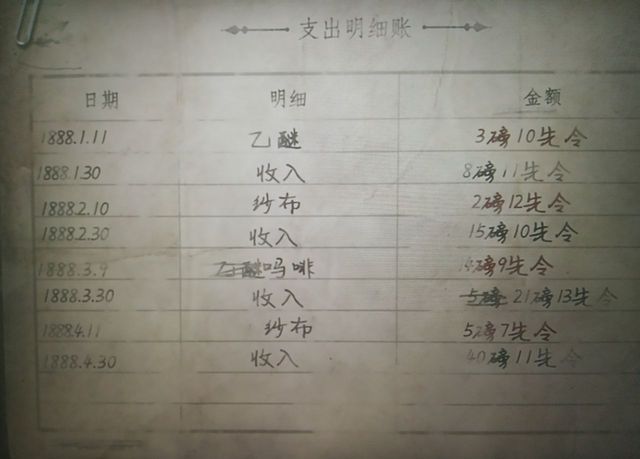 支出明细账
日期 明细 金额
1888.1.11 乙醚 3磅10先令
1888.1.30 收入 8磅11先令
1888.2.10 纱布 2磅12先令
1888.2.30 收入 15磅10先令
1888.3.9 乙醚吗啡 磅9先令
1888.3.30 收入 5磅 21磅13先令
1888.4.11 纱布 5磅7先令
1888.4.30 收入 40磅11先令